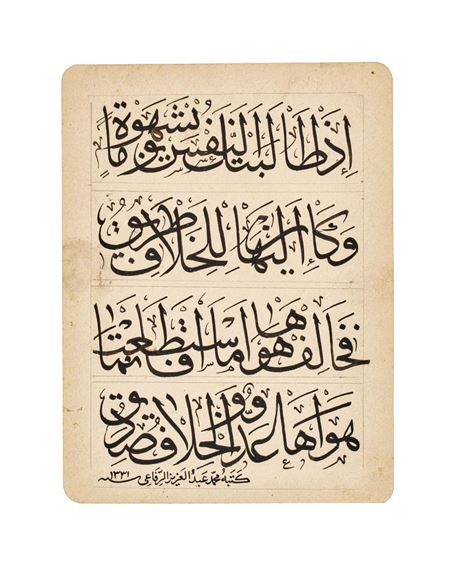 إذا طالبتك النفس يوما بشهوة
وكان إليها للخلاف طريق
فخالف هواها ما استطعت فإنما
هواها عدو والخلاف صديق
كتبه محمد عبد العزيز الرفاعي سنة ١٣٣١